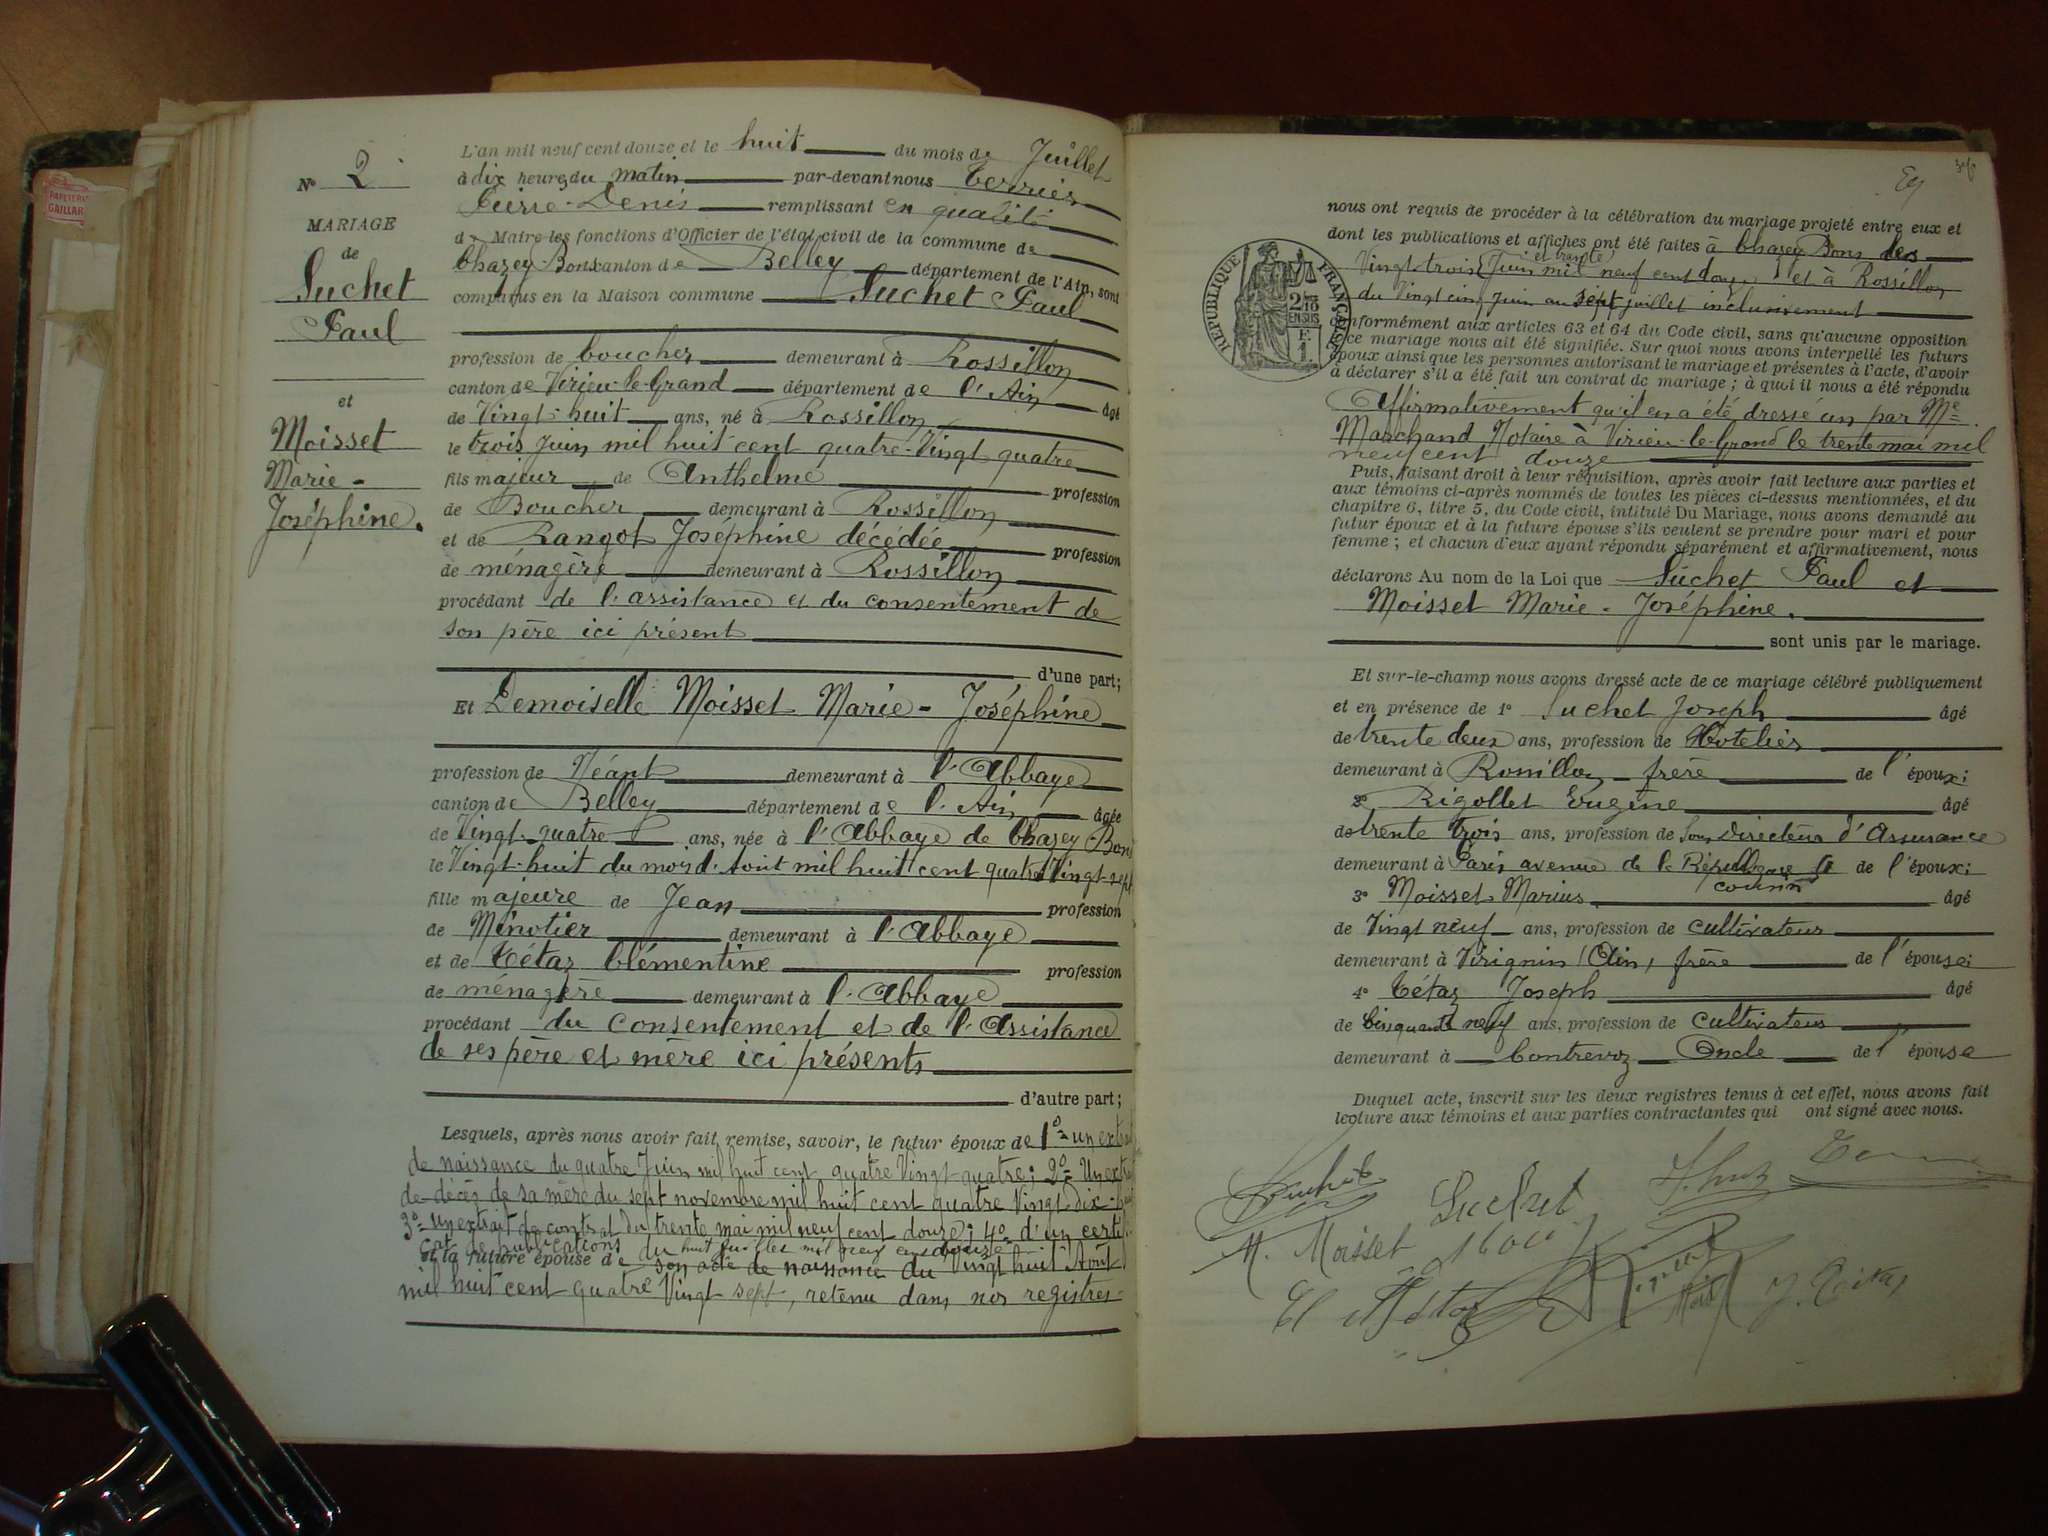 PAPETERIE
GAILLARD
N° 2
MARIAGE
de
Suchet
Paul
et
Moisset
Marie-
Joséphine.
L'an mil neuf cent douze et le huit du mois de Juillet
à dix heures du matin par-devant nous Terrier
Pierre-Denis remplissant en qualité
de Maire les fonctions d'Officier de l'état civil de la commune de
Chazey-Bons canton de Belley département de l'Ain, sont
comparus en la Maison commune Suchet Paul
profession de boucher demeurant à Rossillon
canton de Virieu-le-Grand département de l'Ain âgé
de Vingt-huit ans, né à Rossillon
le trois Juin mil huit cent quatre-Vingt quatre
fils majeur de Anthelme profession
de Boucher demeurant à Rossillon
et de Rangot Joséphine décédée profession
de ménagère demeurant à Rossillon
procédant de l'assistance et du consentement de
son père ici présent
d'une part;
Et Demoiselle Moisset Marie-Joséphine
profession de Néant demeurant à l'Abbaye
canton de Belley département de l'Ain âgée
de Vingt-quatre ans, née à l'Abbaye de Chazey Bons
le Vingt-huit du mois d'Août mil huit cent quatre Vingt-sept
fille majeure de Jean profession
de Minotier demeurant à l'Abbaye
et de Tétaz Clémentine profession
de ménagère demeurant à l'Abbaye
procédant du consentement et de l'Assistance
de ses père et mère ici présents
d'autre part;
Lesquels, après nous avoir fait remise, savoir, le futur époux de 1°= un extrait
de naissance du quatre Juin mil huit cent quatre Vingt-quatre; 2°= Un extrait
de décès de sa mère du sept novembre mil huit cent quatre Vingt dix
3°= un extrait de contrat du trente mai mil neuf cent douze; 4° d'un certifi
cat de publications du huit Juillet mil neuf cent douze
et la future épouse de son acte de naissance du Vingt huit Août
mil huit cent quatre Vingt sept, retenu dans nos registres.
nous ont requis de procéder à la célébration du mariage projeté entre eux et
dont les publications et affiches ont été faites à Chazey Bons les
et trente
Vingt trois Juin mil neuf cent douze et à Rossillon
du Vingt cinq Juin au sept juillet inclusivement
RÉPUBLIQUE FRANÇAISE
conformément aux articles 63 et 64 du Code civil, sans qu'aucune opposition
à ce mariage nous ait été signifiée. Sur quoi nous avons interpellé les futurs
époux ainsi que les personnes autorisant le mariage et présentes à l'acte, d'avoir
à déclarer s'il a été fait un contrat de mariage; à quoi il nous a été répondu
Affirmativement qu'il en a été dressé un par Me
Marchand, Notaire à Virieu-le-Grand le trente mai mil
neuf cent douze
Puis, faisant droit à leur réquisition, après avoir fait lecture aux parties et
aux témoins ci-après nommés de toutes les pièces ci-dessus mentionnées, et du
chapitre 6, titre 5, du Code civil, intitulé Du Mariage, nous avons demandé au
futur époux et à la future épouse s'ils veulent se prendre pour mari et pour
femme; et chacun d'eux ayant répondu séparément et affirmativement, nous
déclarons Au nom de la Loi que Suchet Paul et
Moisset Marie-Joséphine.
sont unis par le mariage.
Et sur-le-champ nous avons dressé acte de ce mariage célébré publiquement
et en présence de 1° Suchet Joseph âgé
de trente deux ans, profession de Hôtelier
demeurant à Rossillon frère de l'époux;
2° Rigollet Eugène âgé
de trente trois ans, profession de Sous Directeur d'Assurance
demeurant à Paris avenue de la République de l'époux;
cousin
3° Moisset Marius âgé
de Vingt neuf ans, profession de cultivateur
demeurant à Virignin (Ain) frère de l'épouse;
4° Tétaz Joseph âgé
de Cinquante neuf ans, profession de cultivateur
demeurant à Contrevoz Oncle de l'épouse
Duquel acte, inscrit sur les deux registres tenus à cet effet, nous avons fait
lecture aux témoins et aux parties contractantes qui ont signé avec nous.
Suchet
M. Moisset